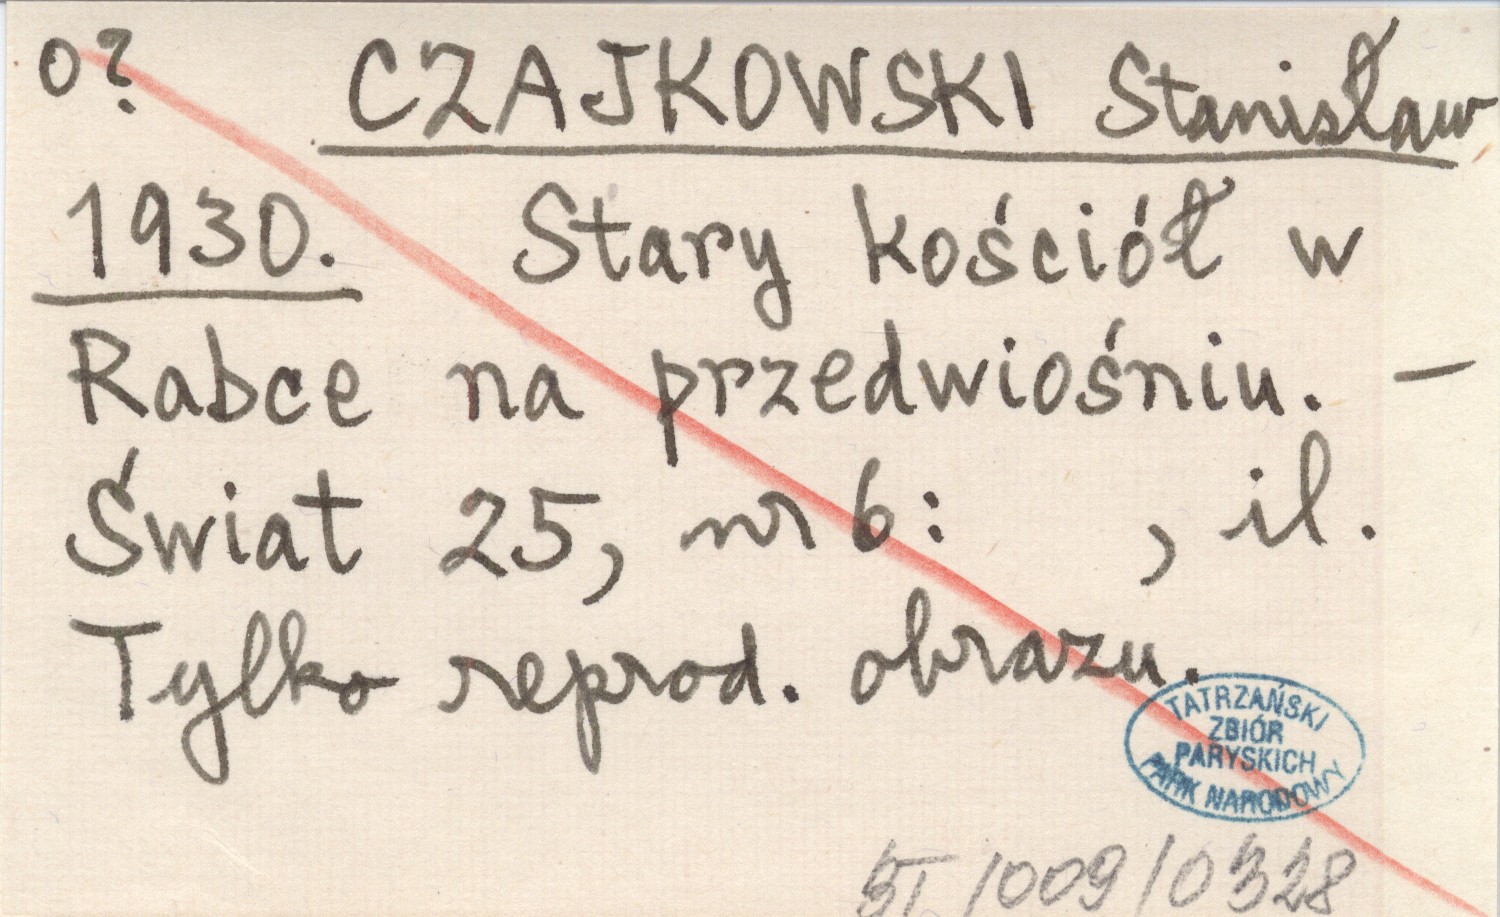 o? CZAJKOWSKI Stanisław
1930. Stary kościół w
Rabce na przedwiośniu. –
Świat 25, nr 6: , il.
Tylko reprod. obrazu.
TATRZAŃSKI
ZBIÓR
PARYSKICH
PARK NARODOWY
/009/0328